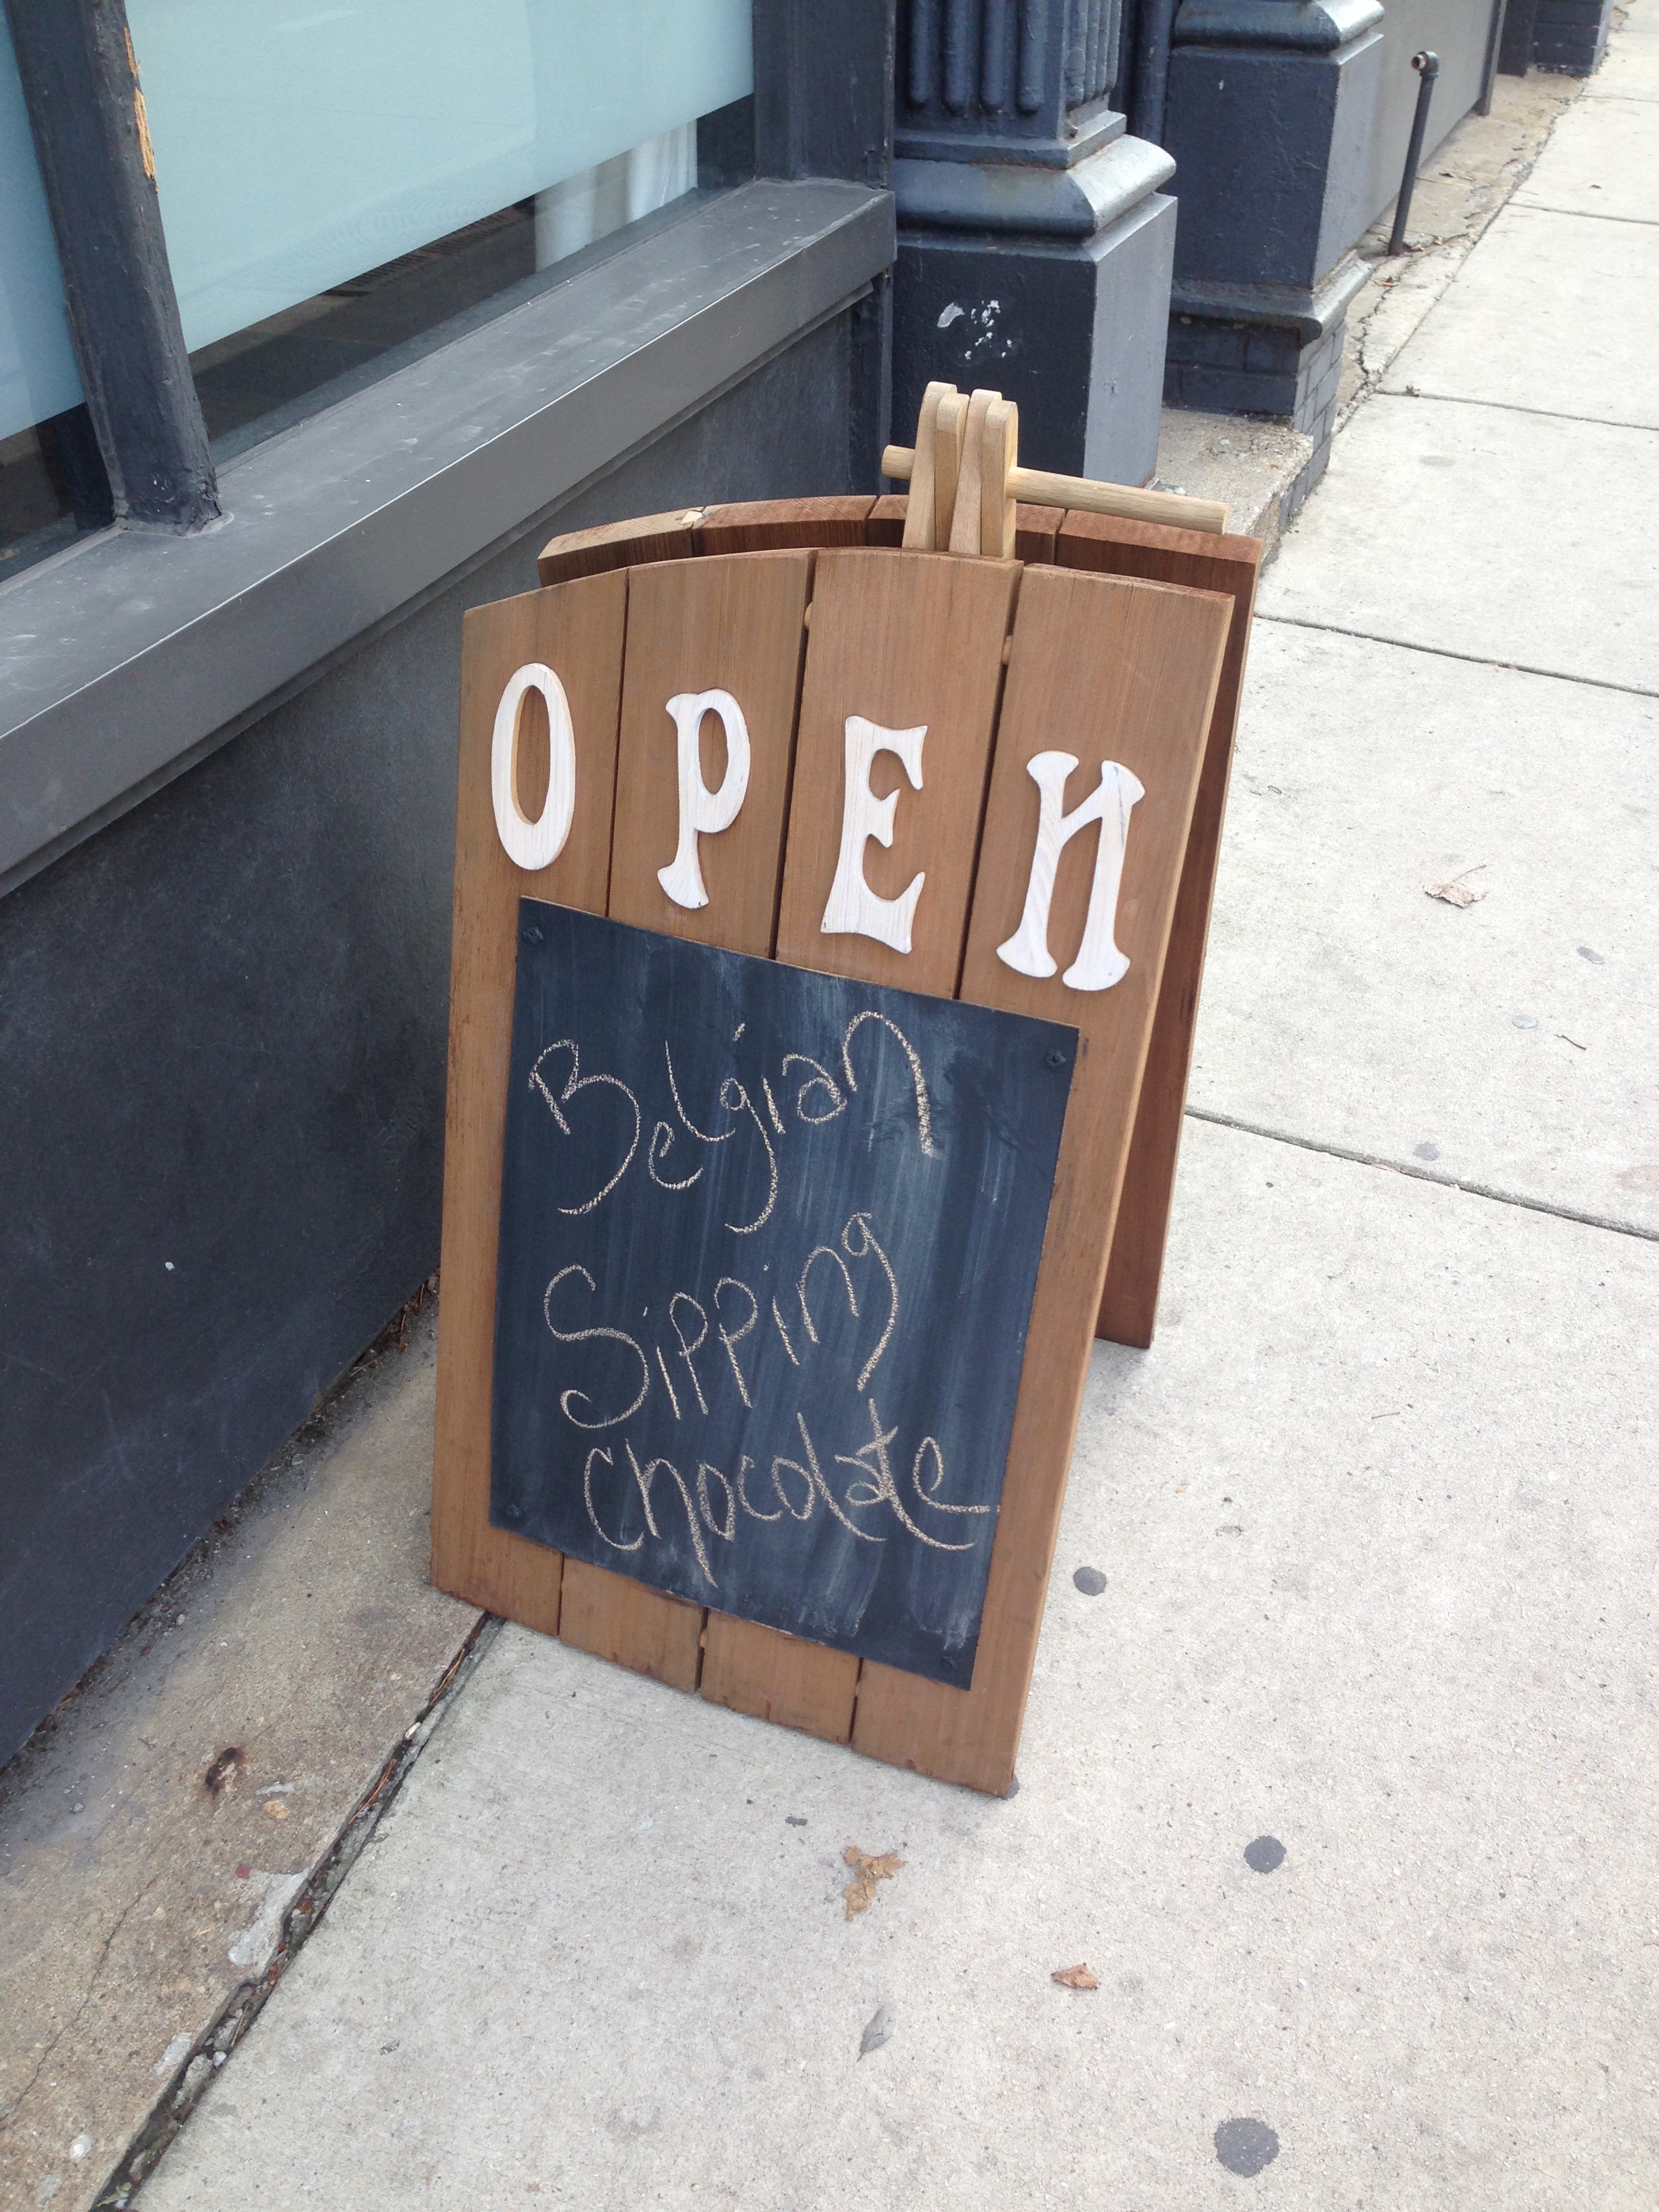 OPEN
Belgian
Sipping
chocolate